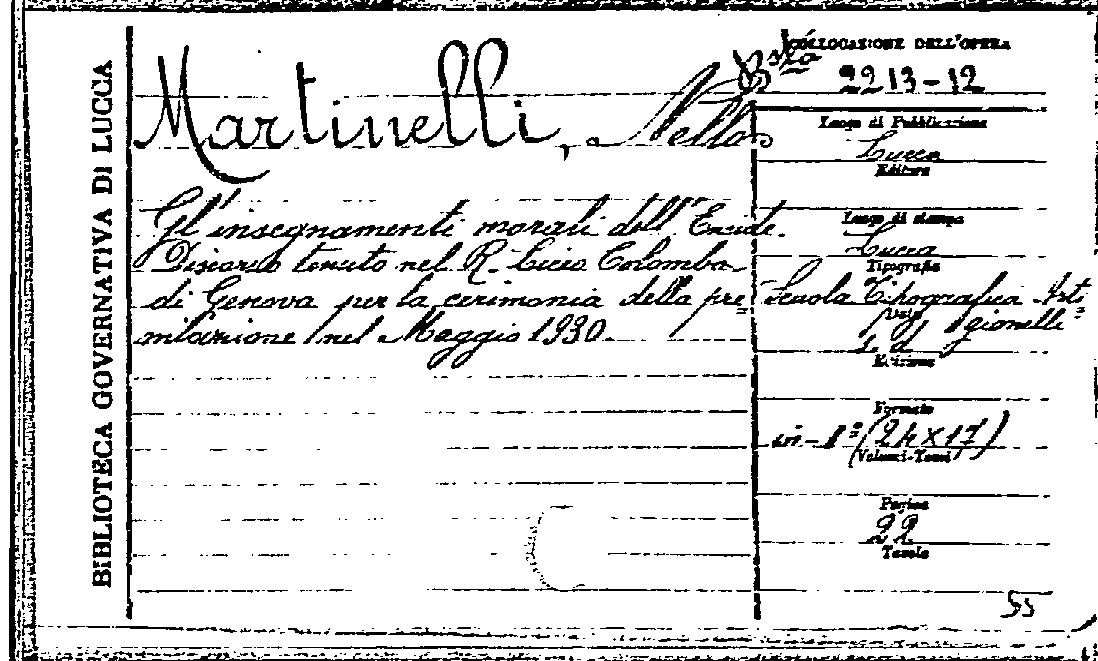 BIBLIOTECA GOVERNATIVA DI LUCCA
Martinelli, Nello
Gl'insegnamenti morali dell'Eneide.
Discorso tenuto nel R. Liceo Colombo
di Genova per la cerimonia della pre=
miazione nel Maggio 1930.
COLLOCAZIONE DELL'OPERA
Bsta
2213-12
Luogo di Pubblicazione
Lucca
Editore
Luogo di stampa
Lucca
Tipografia
Scuola Tipografica Arti=
gianelli
Data
s. d.
Edizione
Formato
in-8° (24x17)
Volumi-Tomi
Pagine
22
Tavole
55